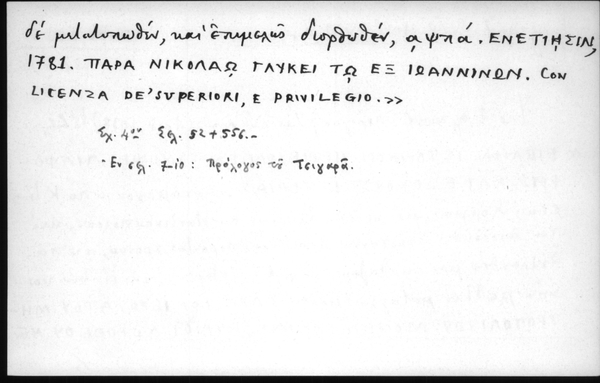 δέ μετατυπωθέν, καί ἐπιμελῶς διορθωθέν, αψπά. ΕΝΕΤΙΗΣΙΝ,
1781. ΠΑΡΑ ΝΙΚΟΛΑῼ ΓΛΥΚΕΙ Τῼ ΕΞ ΙΩΑΝΝΙΝΩΝ. CON
LICENZA DE'SUPERIORI, E PRIVILEGIO.>>
Σχ. 4ον Σελ. 52 + 556.-
- Εν σελ. 7-10: Πρόλογος τοῦ Τσιγαρᾶ.